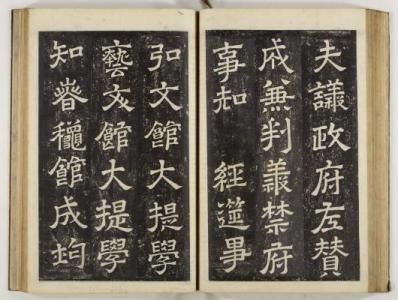 夫議政府左贊
成兼判義禁府
事知　經筵事
弘文館大提學
藝文館大提學
知春秋館成均